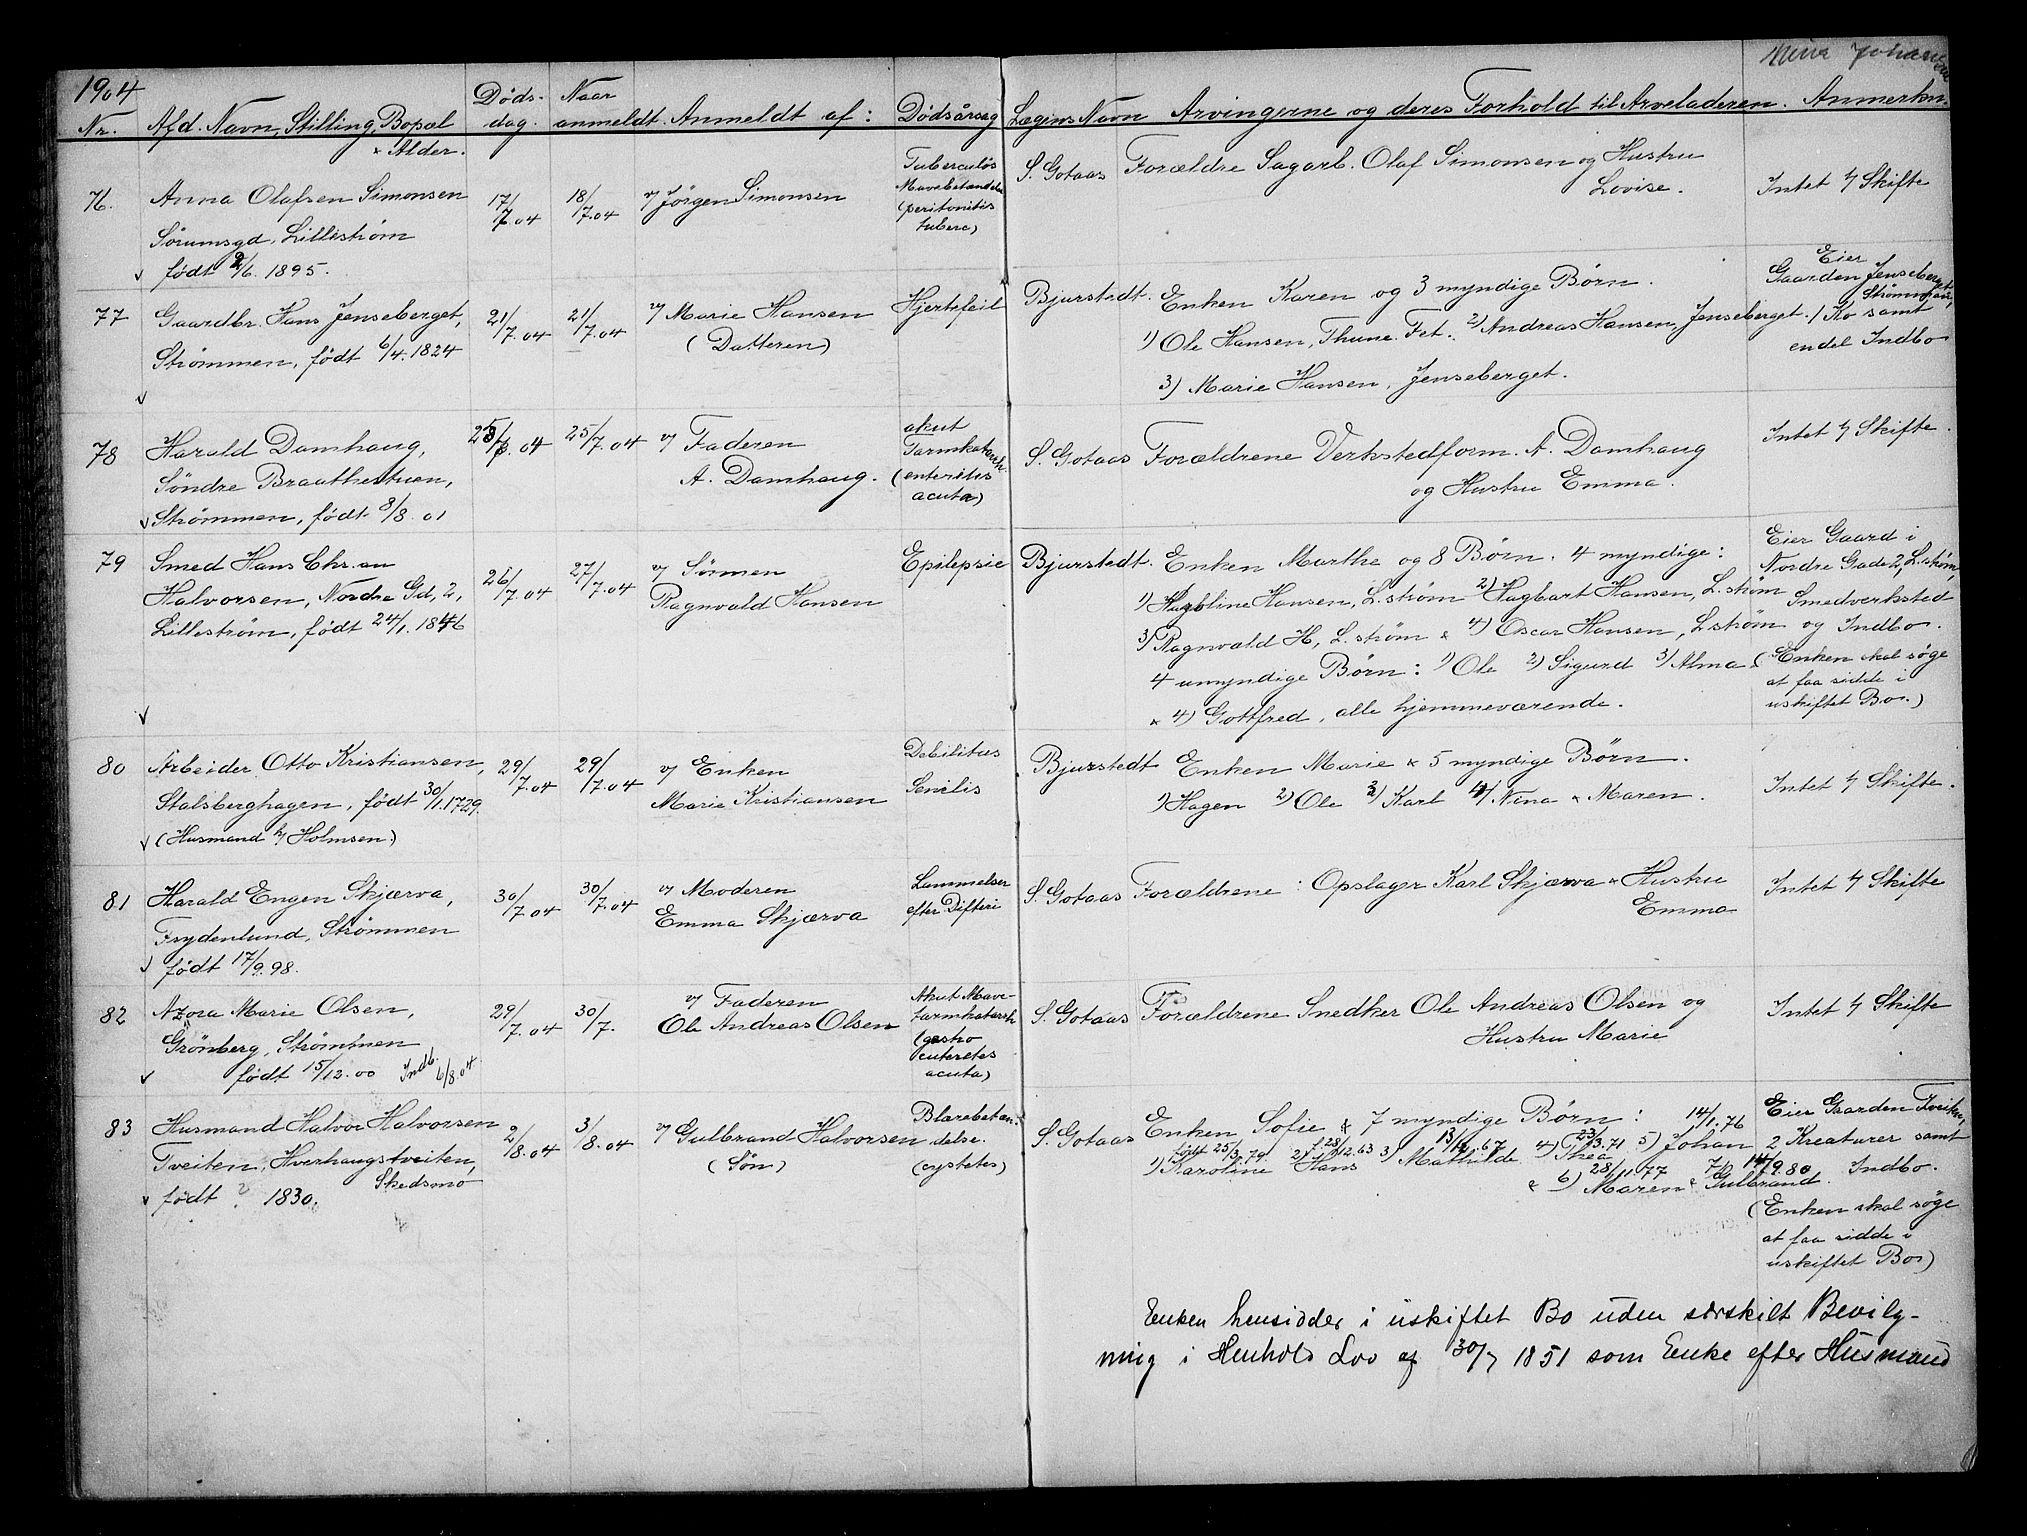 1904
Nr. Afd. Navn, Stilling, Bopæl Døds- Naar Anmeldt af: Dødsårsag Lægens Navn Arvingerne og deres Forhold til Arveladeren. Anmerkn.
x Alder. dag. anmeldt.
76. Anna Olafsen Simonsen
Sørumsgd, Lillestrøm
født 2/6. 1895.
17/7.04
18/7.04
v/ Jørgen Simonsen
Tuberculøs
Mavebetændelse
(peritonitis
tuberc)
S. Gotaas
Forældre Sagarb. Olaf Simonsen og Hustru
Lovise.
Intet t/ Skifte
77 Gaardbr. Hans Jenseberget,
Strømmen, født 6/4. 1824
21/7.04
21/7.04
v/ Marie Hansen
(Datteren)
Hjertefeil
Bjurstedt.
Enken Karen og 3 myndige Børn.
1) Ole Hansen, Thune. Fet. 2) Andreas Hansen, Jenseberget.
3) Marie Hansen, Jenseberget.
Eier
Gaarden Jenseberget
Strømmen,
1 Ko samt
endel Indbo
78 Harald Damhaug,
Søndre Braathestuen,
Strømmen, født 8/8. 01
25/7.04
v/ Faderen
A. Damhaug.
akut
Tarmkatarrh.
(enteritis
acuta)
S. Gotaas
Forældrene Verkstedform. A. Damhaug
og Hustru Emma.
Intet t/ Skifte.
79 Smed Hans Chr.an
Halvorsen, Nordre Gd, 2,
Lillestrøm, født 24/1. 1846
26/7.04
27/7.04
v/ Sønnen
Ragnvald Hansen
Epilepsie
Bjurstedt.
Enken Marthe og 8 Børn. 4 myndige:
1) Hansen, L.strøm 2) Hagbart Hansen, L.strøm
3) Ragnvald H, L.strøm x 4) Oscar Hansen, Lstrøm
4 umyndige Børn: 1) Ole 2) Sigurd 3) Alma
x 4) Gottfred, alle hjemmeværende.
Eier Gaard i
Nordre Gade 2, L.strøm,
Smedverksted
og Indbo.
(Enken skal søge
at faa sidde i
uskiftet Bo.)
80 Arbeider Otto Kristiansen,
Stalsberghagen, født 30/1.1729.
(Husmand u/ Holmsen)
29/7.04
29/7.04
v/ Enken
Marie Kristiansen
Debilitas
Senilis
Bjurstedt
Enken Marie x 5 myndige Børn.
1) Hagen 2) Ole 3) Karl 4) Nina x Maren.
Intet t/ Skifte.
81 Harald Engen Skjærva,
Frydenlund, Strømmen
født 17/9.98.
30/7.04
30/7.04
v/ Moderen
Emma Skjærva
Lammelser
efter Difteri
S. Gotaas
Forældrene: Opslager Karl Skjærva x Hustru
Emma
Intet t/ Skifte
82 Azora Marie Olsen,
Grønberg, Strømmen
født 15/12.00 Indb. 6/8.04
29/7.04
30/7.
v/ Faderen
Ole Andreas Olsen
Akut Mave-
tarmkatarrh
(gastro
enteretes
acuta)
S. Gotaas
Forældrene Snedker Ole Andreas Olsen og
Hustru Marie
Intet t/ Skifte
83 Husmand Halvor Halvorsen
Tveiten, Hverhaugstveiten,
Skedsmo
født ? 1830.
2/8.04
3/8.04
v/ Gulbrand Halvorsen
(Søn)
Blærebetæn-
delse.
(cystetes)
S. Gotaas
Enken Sofie & 7 myndige Børn:
født 25/3.79. 28/12.63 23/3.71 14/1.76
1) Karoline 2) Hans 3) Mathilde 4) Thea 5) Johan
28/11.77 14/9.80
& 6) Maren & 7) Gulbrand.
Eier Gaarden Tveiten,
2 Kreaturer samt
Indbo.
(Enken skal søge
at faa sidde i
uskiftet Bo)
Enken hensidder i uskiftet Bo uden særskilt Bevilg-
ning i Henhold Lov af 30/7 1851 som Enke efter Husmand